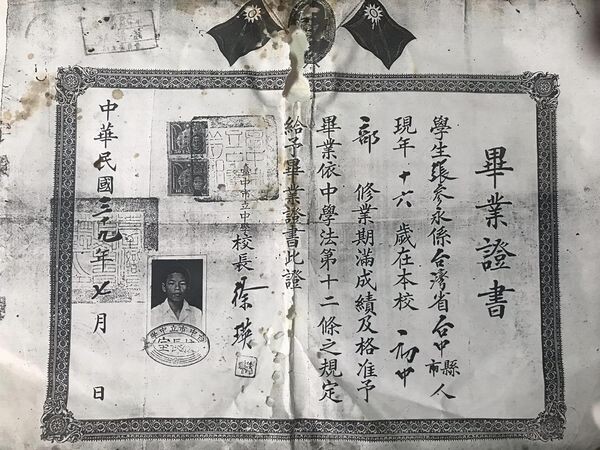 畢業證書
學生張參永係台灣省台中縣市人
現年十六歲在本校初中
部修業期滿成績及格准予
畢業依中學法第十二條之規定
給予畢業證書此證
臺中市立中學校長徐瑛
中華民國三十九年七月 日